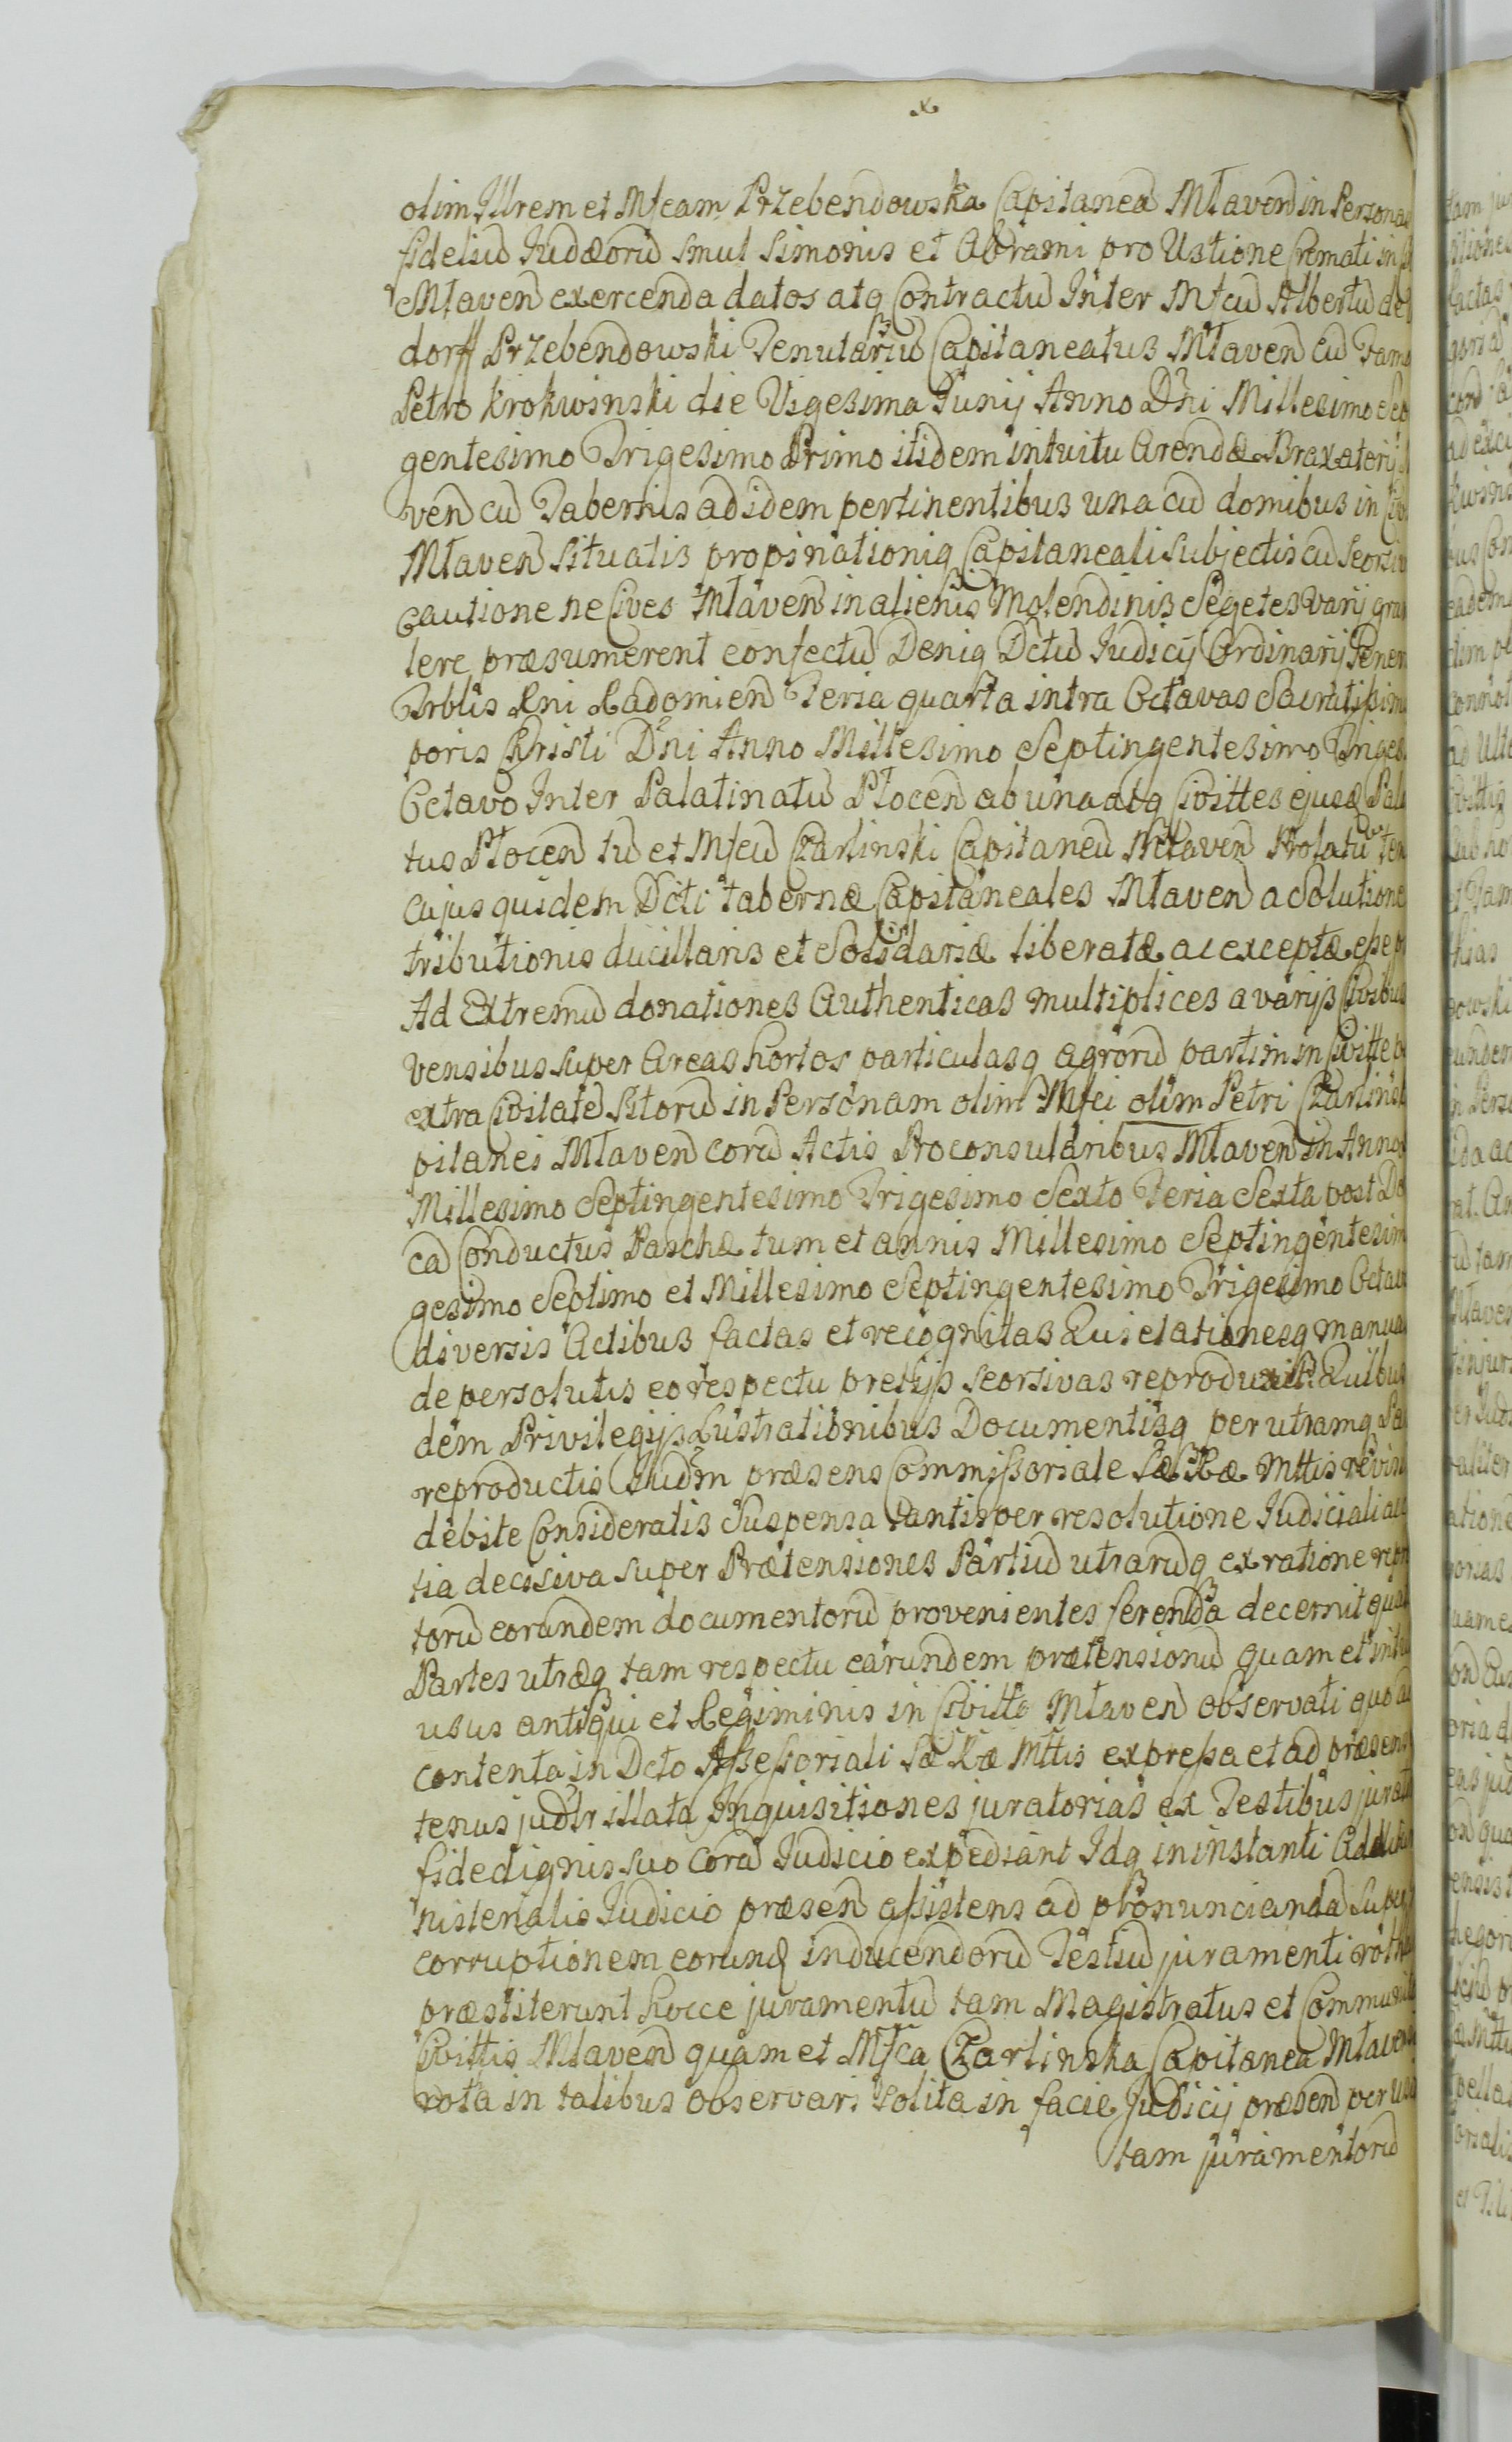 olim Illrem et Mfcam Przebendowska Capitanea Mlaven in Persona
fidelium Judæorũ Smul Simonis et Abrami pro Ustione Cremati in
Mlaven exercenda datos atq Contractũ Inter Mfcũ Albertũ de
dorff Przebendowski Tenutariũ Capitaneatus Mlaven cũ Fam
Petro Krokwinski die Vigesima Junij Anno Dni Millesimo Sep
gentesimo Trigesimo Primo itidem intuitu Arendæ Braxatorij
ven cũ Tabernis ad idem pertinentibus una cũ domibus in
Mlaven situatis propinationiq Capitaneali subjectis cũ Seorsiv
cautione ne Cives Mlaven in alienis Molendinis Segetes varij gra
lere præsumerent confectũ Deniq Dctũ Judicij Ordinarij Gener
Trblis Rni Radomien Feria quarta intra Octavas Sacratissimi
poris Christi Dni Anno Millesimo Septingentesimo Triges
Octavo Inter Palatinatũ Plocen ab una atq Civittes ejusd Pala
tus Plocen tũ et Mfcũ Czarlinski Capitaneũ Mlaven Prolatũ ten
cujus quidem Dcti tabernæ Capitaneales Mlaven a Solutione
tributionis ducillaris et Solidariæ liberatæ ac exceptæ esse
Ad Extremũ donationes Authenticas multiplices a varijs Civibus
vensibus super Areas hortos particulasq agrorũ partim in Civitte
extra Civitatẽ sitorũ in Personam olim Mfci olim Petri Czarlinski
pitanei Mlaven corã Actis Proconsularibus Mlaven in Anno
Millesimo Septingentesimo Trigesimo Sexto Feria Sexta post Do
cã Conductus Paschæ tum et annis Millesimo Septingentesim
gesimo Septimo et Millesimo Septingentesimo Trigesimo Octav
diversis Actibus factas et recognitas Quietationesq manua
de persolutis eo respectu pretijs seorsivas reproduxit Quibus
dem Privilegijs Lustrationibus Documentisq per utramq Pa
reproductis Judm præsens Commissoriale Sæ Ræ Mttis revin
debite Consideratis Suspensa tantisper resolutione Judiciali ac
tia decisiva super Prætensiones Partiũ utrarũq ex ratione repr
torũ eorundem documentorũ provenientes ferenda decernit quat
Partes utræq tam respectu earundem prætensionũ quam et intu
usus antiqui et Regiminis in Civitte Mlaven observati quo a
contenta in Dcto Assessoriali Sæ Ræ Mttis expressa et ad præsens
tenus judlr illata Inquisitiones juratorias ex Testibus jurat
fide dignis suo corã Judicio expediant Idq in instanti Add
nisterialis Judicio præsen assistens ad pronuncianda super
corruptionem eorund inducendorũ Testiũ juramenti roth
præstiterunt hocce juramentũ tam Magistratus et Communit
Civittis Mlaven quam et Mfca Czarlinska Capitanea Mlaven
rota in talibus observari solita in facie Judicij præsen per
tam juramentorũ